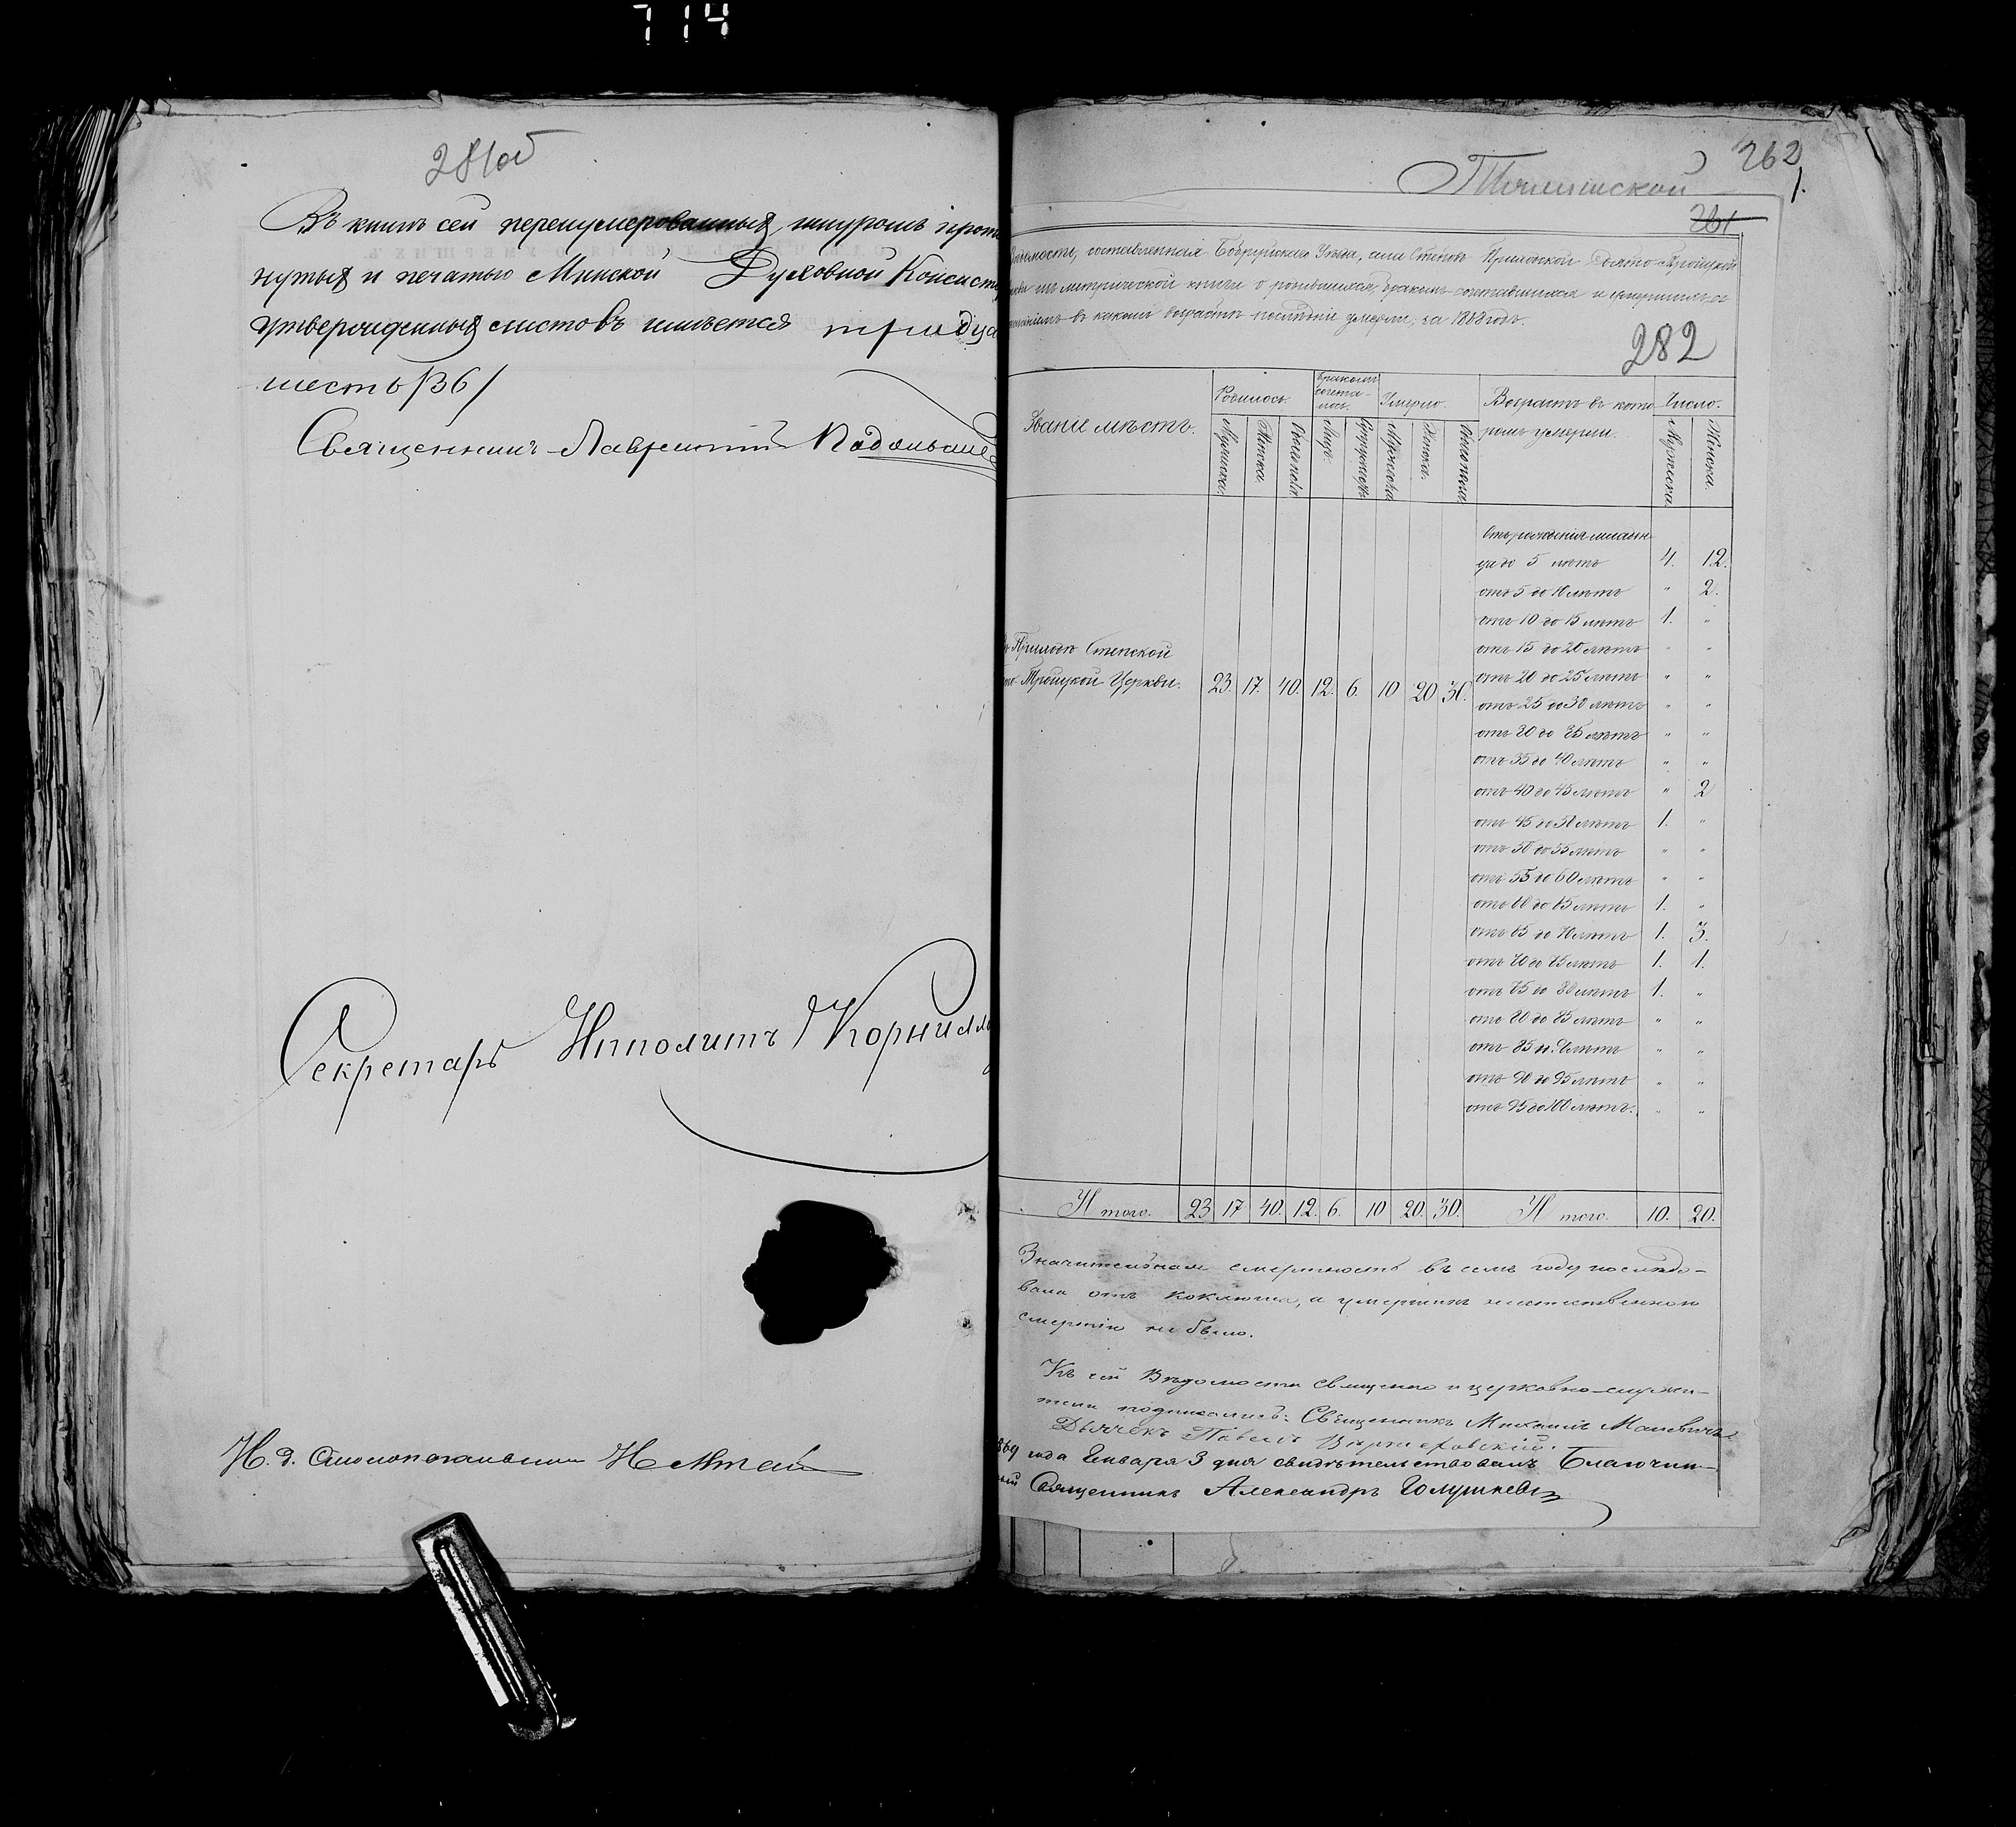 714
281об
Въ книгѣ сей перенумерованныхъ, шнуромъ прот
нутыхъ и печатью Минской Духовной Консист
утвержденныхъ листовъ имѣется тридца
шесть /36/
Священникъ Лаврентій
Секретарь Ипполитъ Корнил
И. д. Столоначальника
262
1.
261
Вѣдомость, составленная Бобруйскаго Уѣзда, села Степовъ Приходской Свято-Троицкой
изъ метрической книги о родившихся, бракомъ сочетавшихся и умершихъ съ
въ какомъ возрастѣ послѣдніе умерли, за 1868 годъ.
282
Званіе мѣстъ. Родилось. Бракомъ сочета-лось. Умерло. Возрастъ въ кото- Число.
ромъ умерли.
Мужеска. Женска. Обоего пола Мужеска Женска. Обоего пола Мужеска. Женска.
Отъ рожденія младен
ца до 5 лѣтъ 4. 12.
отъ 5 до 10 лѣтъ " 2.
отъ 10 до 15 лѣтъ 1. "
отъ 15 до 20 лѣтъ " "
Приходѣ Степской
Троицкой Церкви. 23. 17. 40. 12. 6. 10 20 30. отъ 20 до 25 лѣтъ " "
отъ 25 до 30 лѣтъ " "
отъ 30 до 35 лѣтъ " "
отъ 35 до 40 лѣтъ " "
отъ 40 до 45 лѣтъ " 2
отъ 45 до 50 лѣтъ 1. "
отъ 50 до 55 лѣтъ " "
отъ 55 до 60 лѣтъ " "
отъ 60 до 65 лѣтъ 1. "
отъ 65 до 70 лѣтъ 1. 3.
отъ 70 до 75 лѣтъ 1. 1.
отъ 75 до 80 лѣтъ 1. "
отъ 80 до 85 лѣтъ " "
отъ 85 до 90 лѣтъ " "
отъ 90 до 95 лѣтъ " "
отъ 95 до 100 лѣтъ. " "
Итого. 23 17 40. 12. 6. 10 20. 30. Итого. 10. 20.
Значительная смертность въ семъ году послѣдо-
вала отъ коклюша, а умершихъ неестественною
смертію не было.
Къ сей Вѣдомости священно и церковно-служи-
тели подписались: Священникъ Михаилъ Малевичъ
Дьячекъ Павелъ
869 года Января 3 дня свидѣтельствовалъ Благочин-
ный Священникъ Александръ